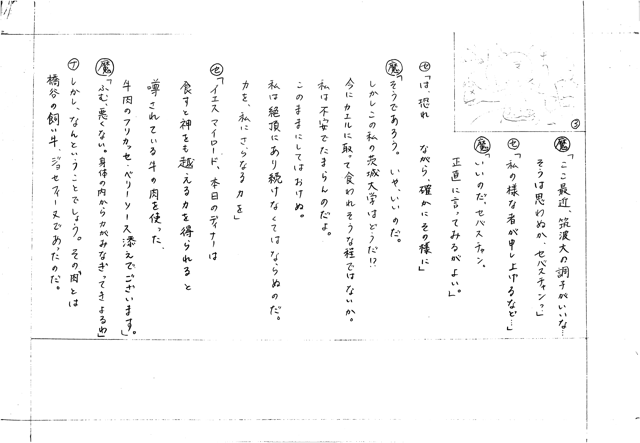 ③
魔「ここ最近、筑波大の調子がいいな…
そうは思わぬか、セバスチャン?」
セ「私の様な者が申し上げるなど…」
魔「いいのだ、セバスチャン、
正直に言ってみるがよい。」
セ「は、恐れ ながら、確かにその様に」
魔「そうであろう。いや、いいのだ。
しかしこの私の茨城大学はどうだ!?
今にカエルに取って食われそうな程ではないか。
私は不安でたまらんのだよ。
このままにしてはおけぬ。
私は絶頂にあり続けなくてはならぬのだ。
力を、私にさらなる力を」
セ「イエスマイロード、本日のディナーは
食すと神をも越える力を得られると
噂されている牛の肉を使った、
牛肉のフリカッセ・ベリーソース添えでございます」
魔「ふむ、悪くない。身体の内から力がみなぎってきよるわ」
ナ しかし、なんということでしょう。その肉とは
橋谷の飼い牛、ジョセフィーヌであったのだ。